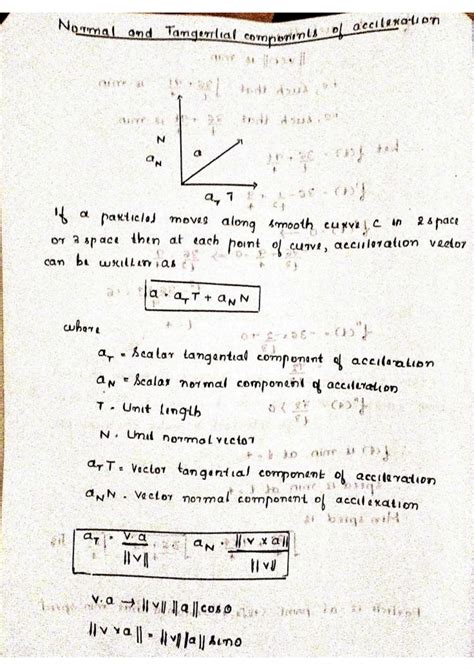 Normal and Tangential components of accileration
N
a_N
a
a_T T
If a particles moves along smooth curve, C in 2 space
or 3 space then at each point of curve, accileration vector
can be written as
a = a_T T + a_N N
where
a_T = Scalar tangential component of accileration
a_N = Scalar normal component of accileration
T = Unit length
N = Unit normal vector
a_T T = Vector tangential component of accileration
a_N N = Vector normal component of accileration
a_T = v.a / ||v|| a_N = ||v x a|| / ||v||
v.a → ||v|| ||a|| cosθ
||v x a|| = ||v|| ||a|| sinθ